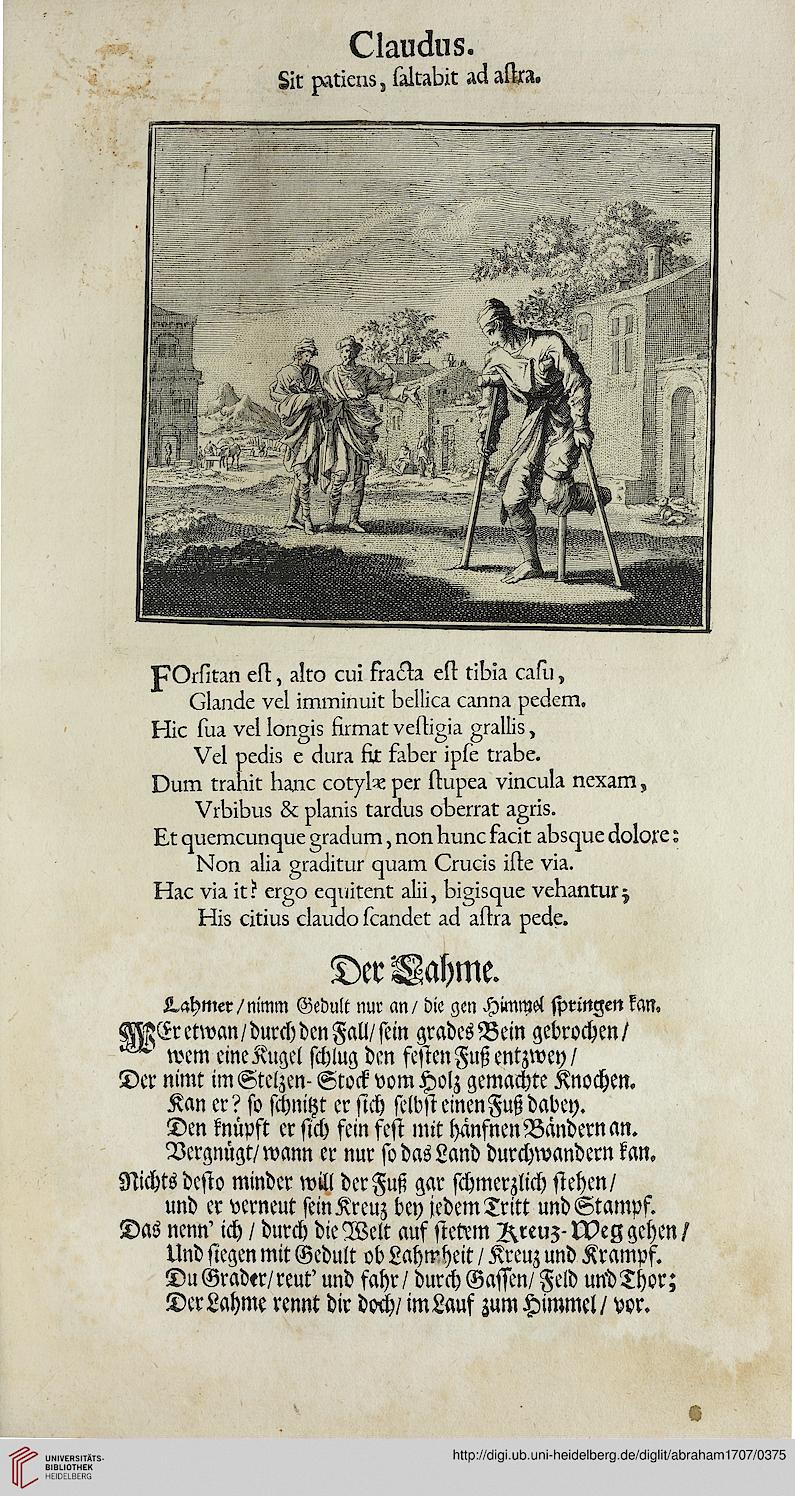 Claudus.
Sit patiens, ſaltabit ad aſtra.
FOrſitan eſt, alto cui fracta eſt tibia caſu,
Glande vel imminuit bellica canna pedem.
Hic ſua vel longis firmat veſtigia grallis,
Vel pedis e dura fit faber ipſe trabe.
Dum trahit hanc cotylæ per ſtupea vincula nexam,
Vrbibus & planis tardus oberrat agris.
Et quemcunque gradum, non hunc facit absque dolore:
Non alia graditur quam Crucis iſte via.
Hac via it? ergo equitent alii, bigisque vehantur;
His citius claudo ſcandet ad aſtra pede.
Der Lahme.
Lahmer / nimm Gedult nur an / die gen Himmel ſpringen kan.
WEr etwan / durch den Fall / ſein grades Bein gebrochen /
wem eine Kugel ſchlug den feſten Fuß entzwey /
Der nimt im Stelzen-Stock vom Holz gemachte Knochen.
Kan er? ſo ſchnitzt er ſich ſelbſt einen Fuß dabey.
Den knüpft er ſich fein feſt mit hänfnen Bändern an.
Vergnügt / wann er nur ſo das Land durchwandern kan.
Nichts deſto minder will der Fuß gar ſchmerzlich ſtehen /
und er verneut ſein Kreuz bey jedem Tritt und Stampf.
Das nenn' ich / durch die Welt auf ſtetem Kreuz-Weg gehen /
Und ſiegen mit Gedult ob Lahmheit / Kreuz und Krampf.
Du Grader / reut' und fahr / durch Gaſſen / Feld und Thor;
Der Lahme rennt dir doch / im Lauf zum Himmel / vor.
UNIVERSITÄTS-
BIBLIOTHEK
HEIDELBERG
http://digi.ub.uni-heidelberg.de/diglit/abraham1707/0375